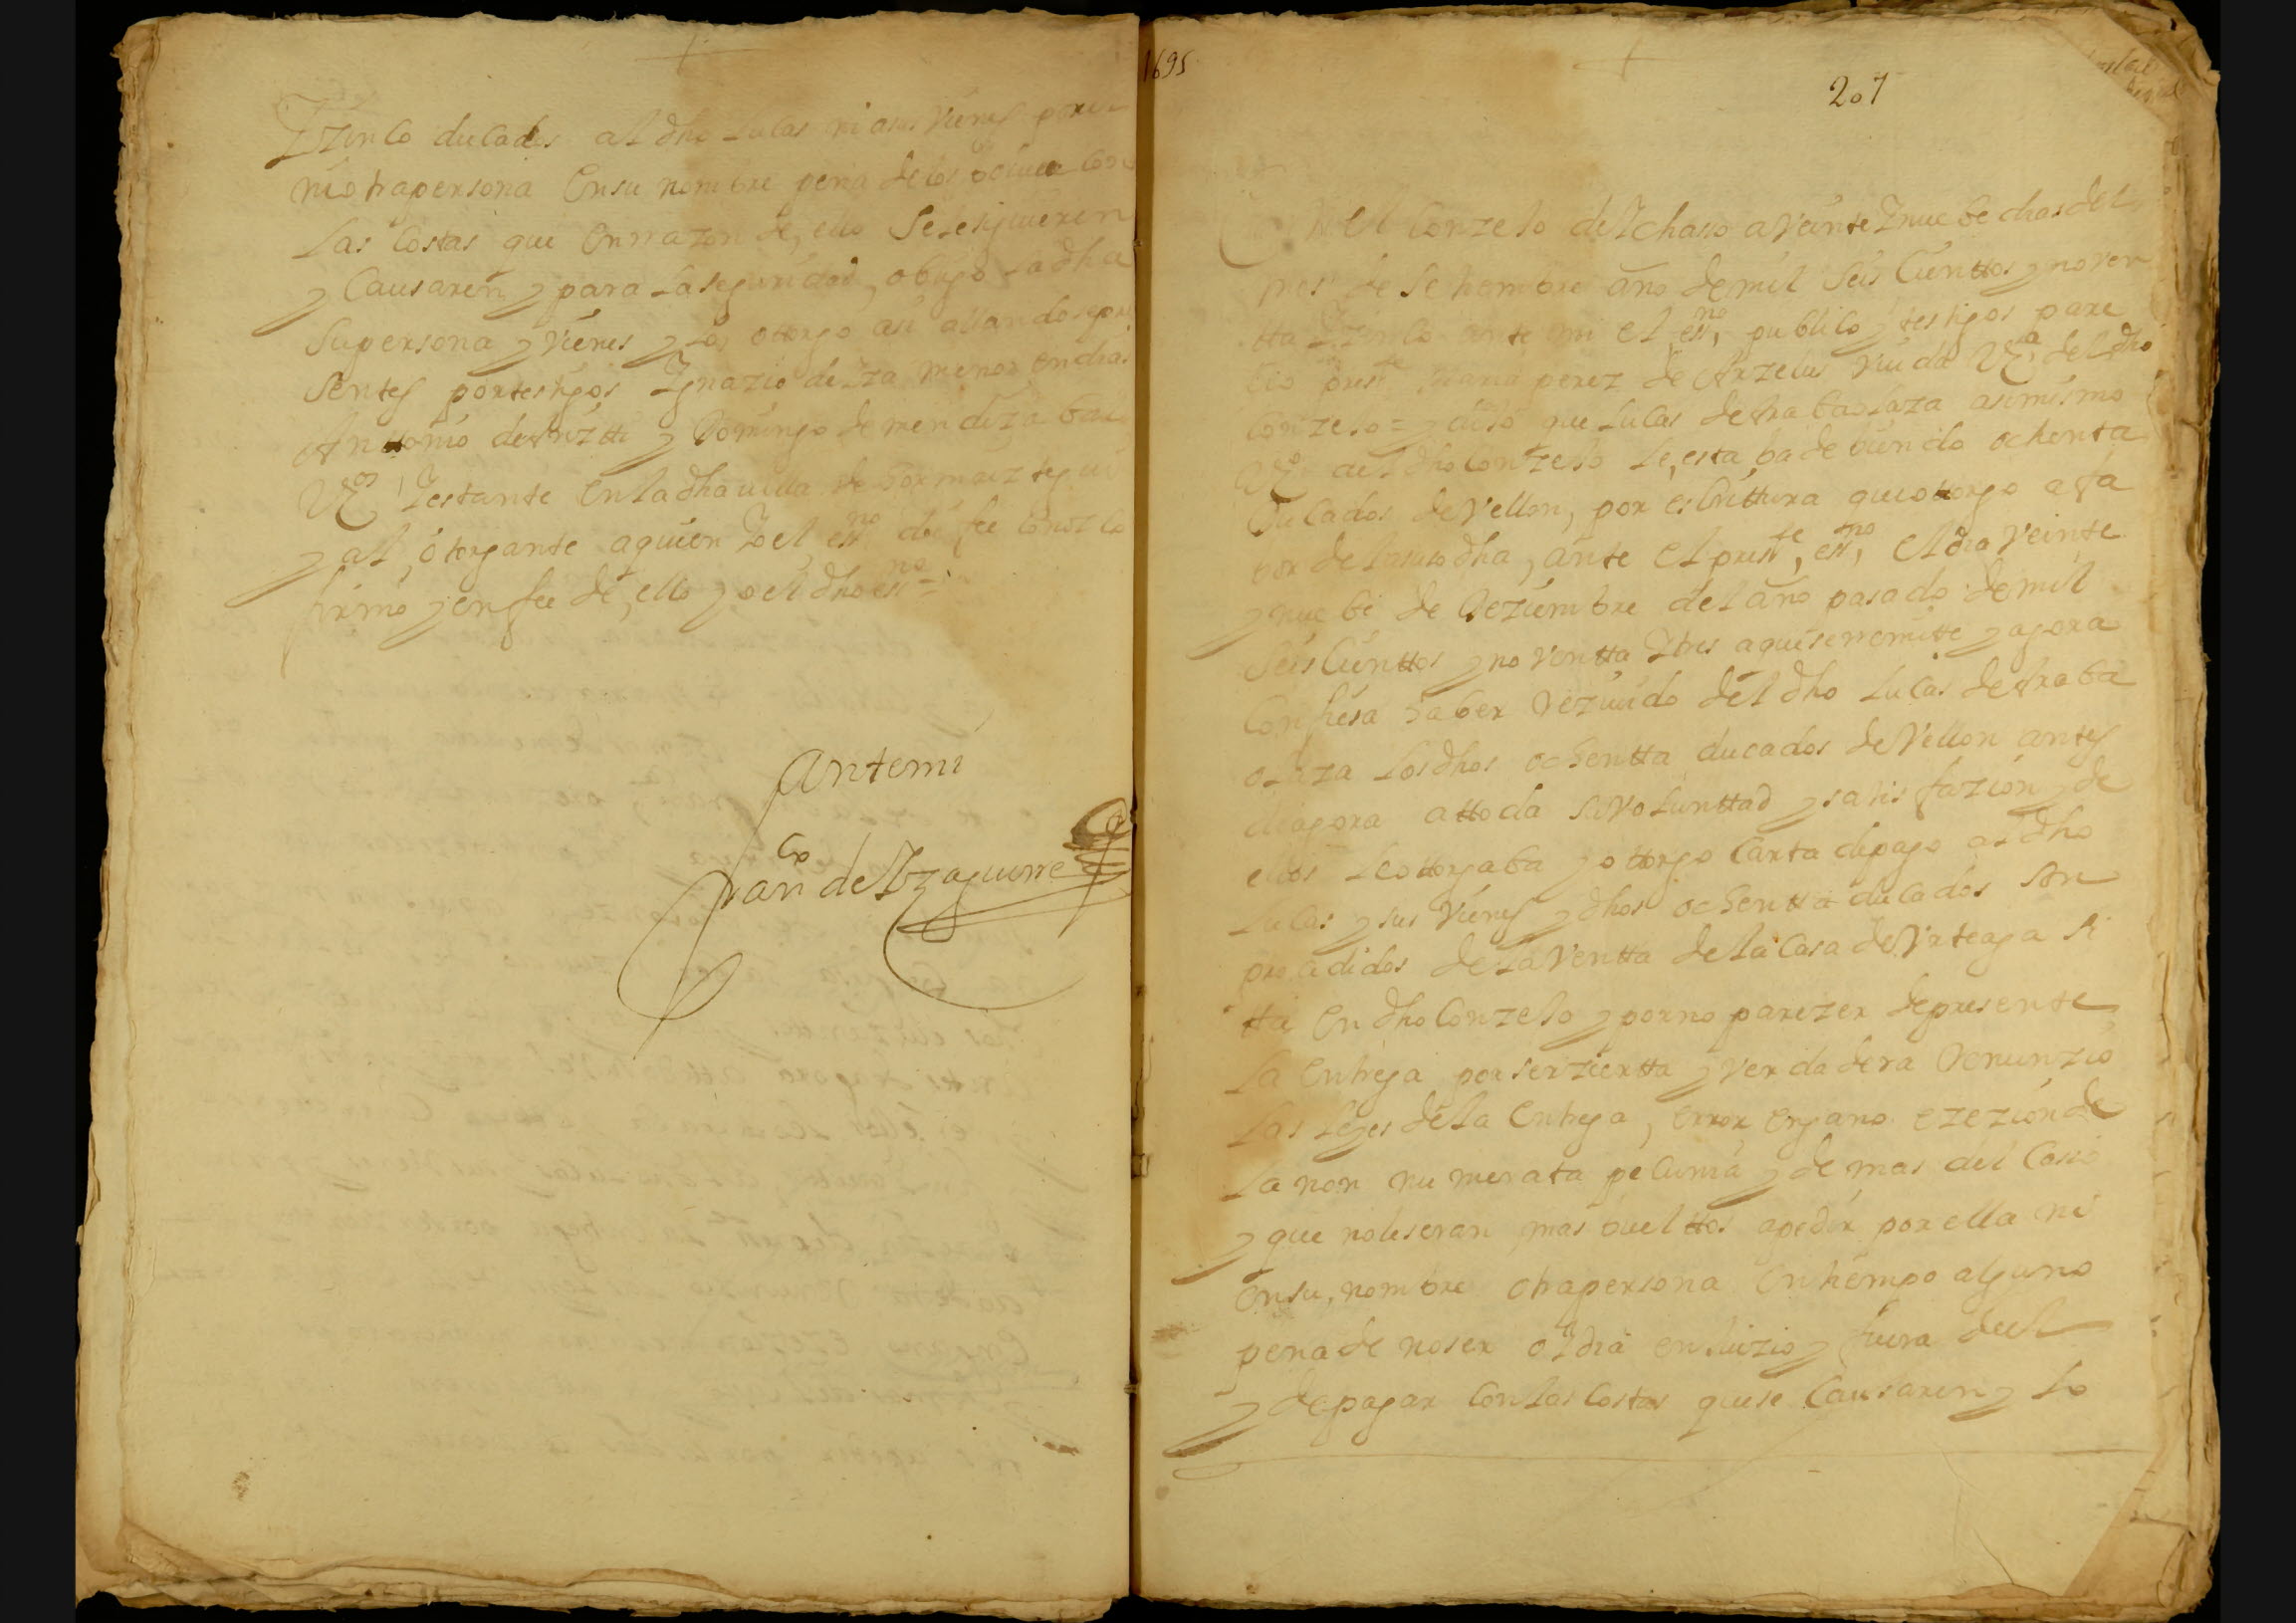 Yzinco ducados al dho Lucas ni asus vienes por si
ni otra persona en su nombre pena de los bolver con
las costas que en rrazon de ello se le siguieren
y causaren y para la seguridad obligo la dha
su persona y vienes y los otorgo asi allandose pre
sentes por testigos Ygnazio de Yza menor en dias
Anttonio de Arizti y Domingo de mendizabal
Vos Yestante en la dha villa de Hormaiztegui
y al otorgante a quien Yo el essno doi fee conozco
firmo y en fee de ello yo el dho essno =
Antemi
franco de Yzaguirre
1695
207
En el Conzejo de Ychaso a veinte Ynuebe dias del
mes de Setiembre año de mil Seis Cienttos y noven
tta Yzinco ante mi el essno publico y testigos pare
zio presste Maria perez de Arzelus viuda Vza del dho
Conzejo = y dijo que Lucas de Araba olaza asimismo
Vzo del dho Conzejo le estaba debiendo ochenta
Ducados de Vellon, por escrittura que ottorgo a fa
bor de la suso dha, ante el presste essno, el dia veinte
y nuebe de Deziembre del año pasado de mil
Seis Cienttos y noventta Ytres aque se rremite y agora
Confiesa haber Rezivido del dho Lucas de Araba
olaza los dhos ochentta ducados de Vellon antes
de agora a ttoda su volunttad y satisfazion y de
ellos le ottorgaba y ottorgo Carta de pago al dho
Lucas y sus vienes y dhos ochentta ducados son
prozedidos de la ventta de la Casa de Vrteaga si
tta en dho Conzejo y por no parezer de presente
la entrega por ser ziertta y verdadera Renunzio
las leyes de la entrega, error engano ezezion de
la non numerata pecunia y demas del Caso
y que no le seran mas bueltos apedir por ella ni
en su nombre otra persona en tiempo alguno
pena de no ser oyda en juizio y fuera de el
y de pagar con las Costas que se Causaren y lo